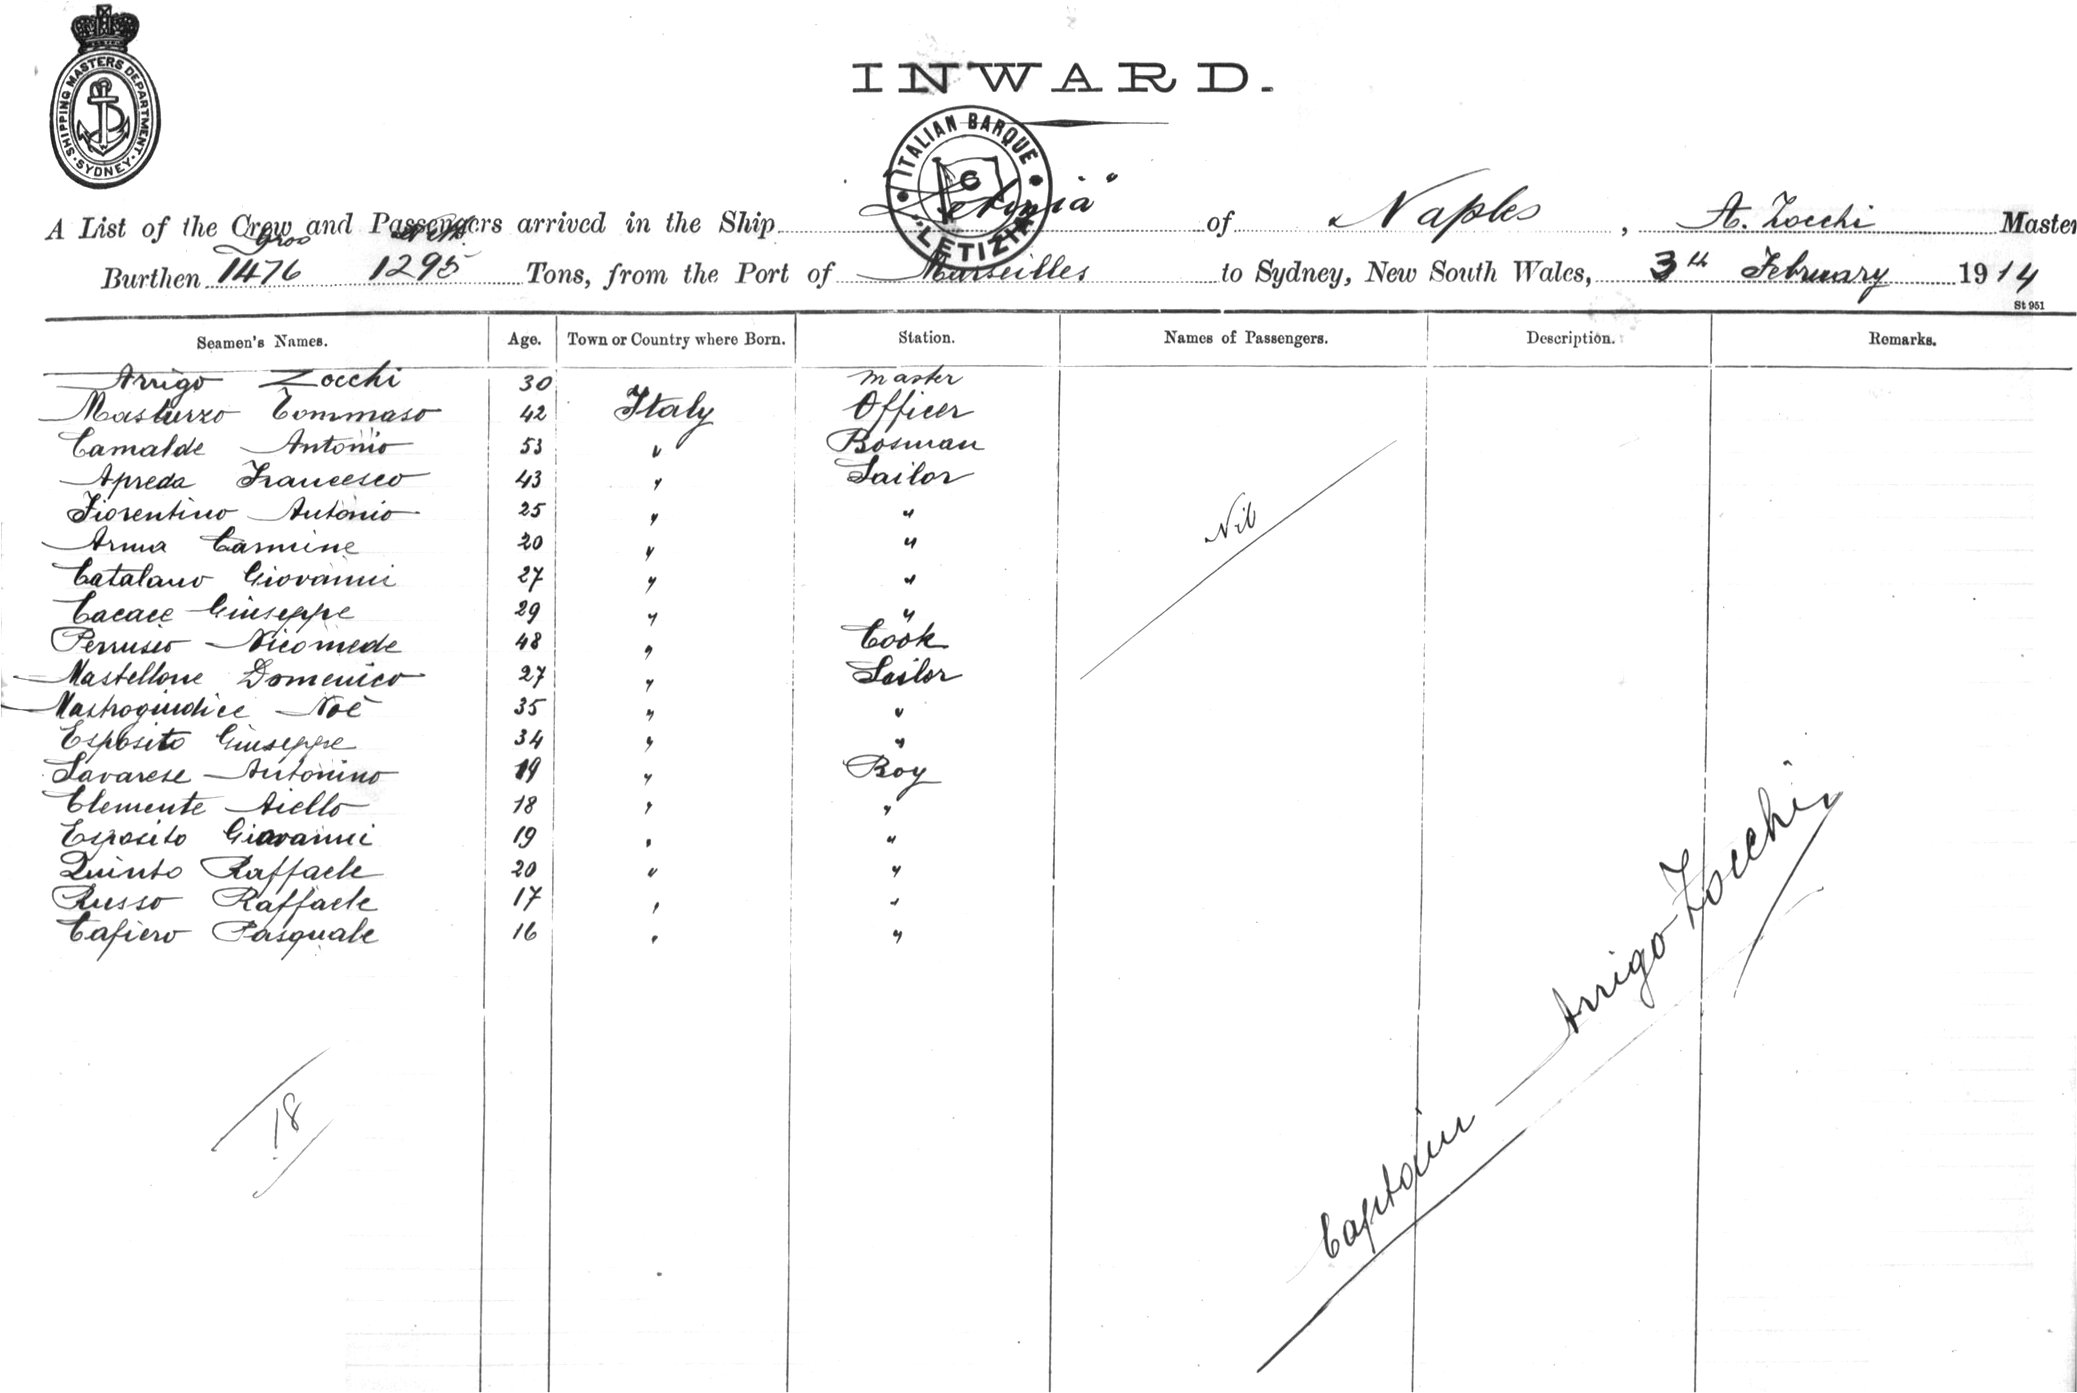 SHIPPING MASTERS DEPARTMENT · SYDNEY ·
INWARD.
ITALIAN BARQUE
G
"LETIZIA"
A List of the Crew and Passengers arrived in the Ship "Letizia" of Naples, A. Zocchi Master
Gross Nett
Burthen 1476 1295 Tons, from the Port of Marseilles to Sydney, New South Wales, 3rd February 1914
St 951
Seamen's Names. Age. Town or Country where Born. Station. Names of Passengers. Description. Remarks.
Arrigo Zocchi 30 master
Masturzo Tommaso 42 Italy Officer
Camalde Antonio 53 " Bosman
Apreda Francesco 43 " Sailor
Fiorentino Antonio 25 " "
Nil
Arma Carmine 20 " "
Catalano Giovanni 27 " "
Cacace Giuseppe 29 " "
Perrusio Nicomede 48 " Cook
Mastellone Domenico 27 " Sailor
Mastrogiudice Noè 35 " "
Esposito Giuseppe 34 " "
Savarese Antonino 19 " Boy
Clemente Aiello 18 " "
Esposito Giovanni 19 " "
Quinto Raffaele 20 " "
Russo Raffaele 17 " "
Cafiero Pasquale 16 " "
18
Captain Arrigo Zocchi